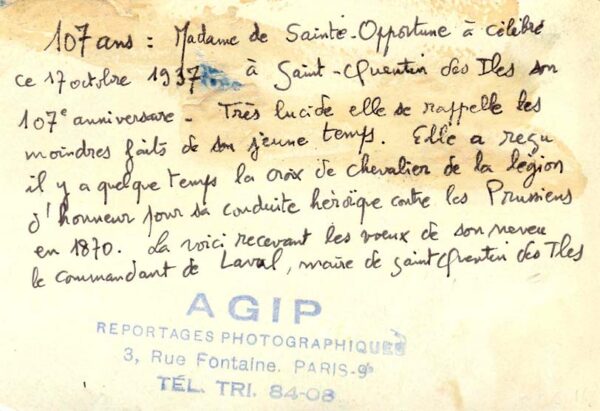 107 ans : Madame de Sainte-Opportune à célébré
ce 17 octobre 1937 à Saint-Quentin des Iles son
107e anniversare - Très lucide elle se rappelle les
moindres faits de son jeune temps. Elle a reçu
il y a quelque temps la croix de chevalier de la légion
d'honneur pour sa conduite héroïque contre les Prussiens
en 1870. La voici recevant les voeux de son neveu
le commandant de Laval, maire de Saint Quentin des Iles
AGIP
REPORTAGES PHOTOGRAPHIQUES
3, Rue Fontaine. PARIS-9e
TÉL. TRI. 84-08